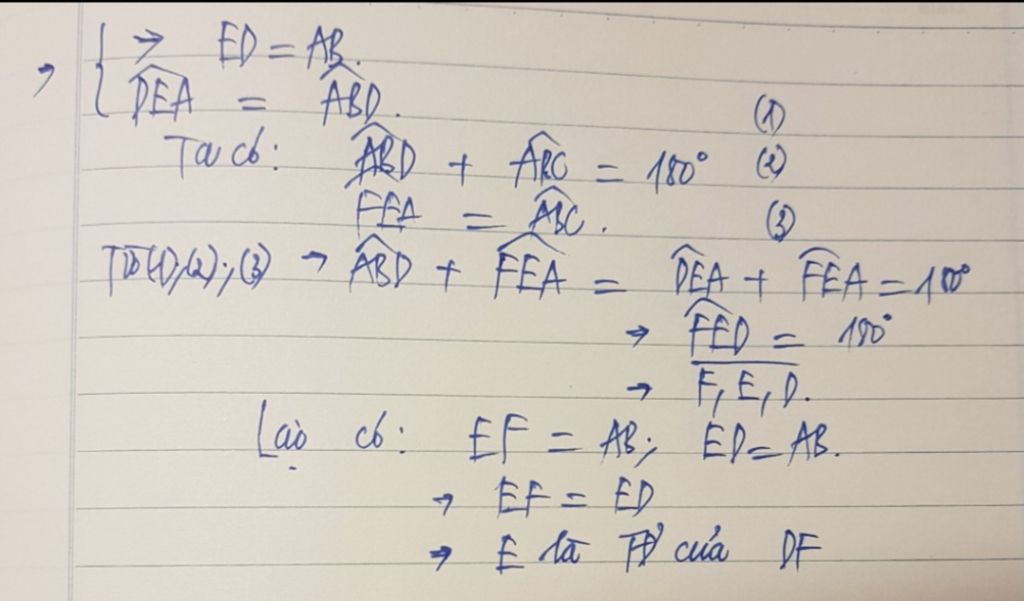 → { → ED = AB.
\widehat{DEA} = \widehat{ABD}. (1)
Ta có: \widehat{ABD} + \widehat{ABC} = 180° (2)
FEA = \widehat{ABC}. (3)
Từ (1),(2);(3) → \widehat{ABD} + \widehat{FEA} = \widehat{DEA} + \widehat{FEA} = 180°
→ \widehat{FED} = 180°
→ \overline{F, E, D}.
Lại có: EF = AB; ED = AB.
→ EF = ED
→ E là TĐ của DF